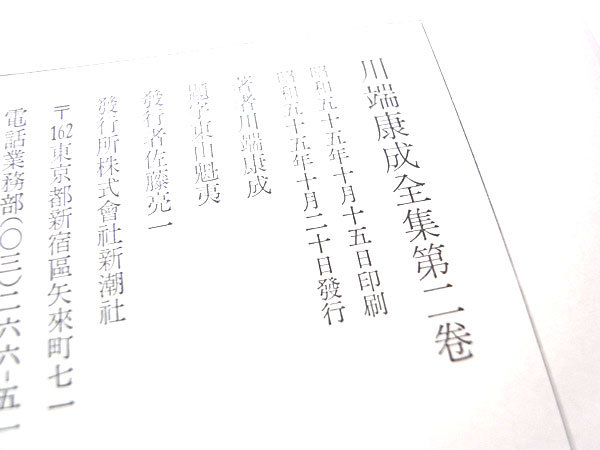 川端康成全集第二卷
昭和五十五年十月十五日印刷
昭和五十五年十月二十日發行
著者川端康成
題字東山魁夷
發行者佐藤亮一
發行所株式會社新潮社
〒162東京都新宿區矢來町七一
電話業務部(〇三)二六六-五一